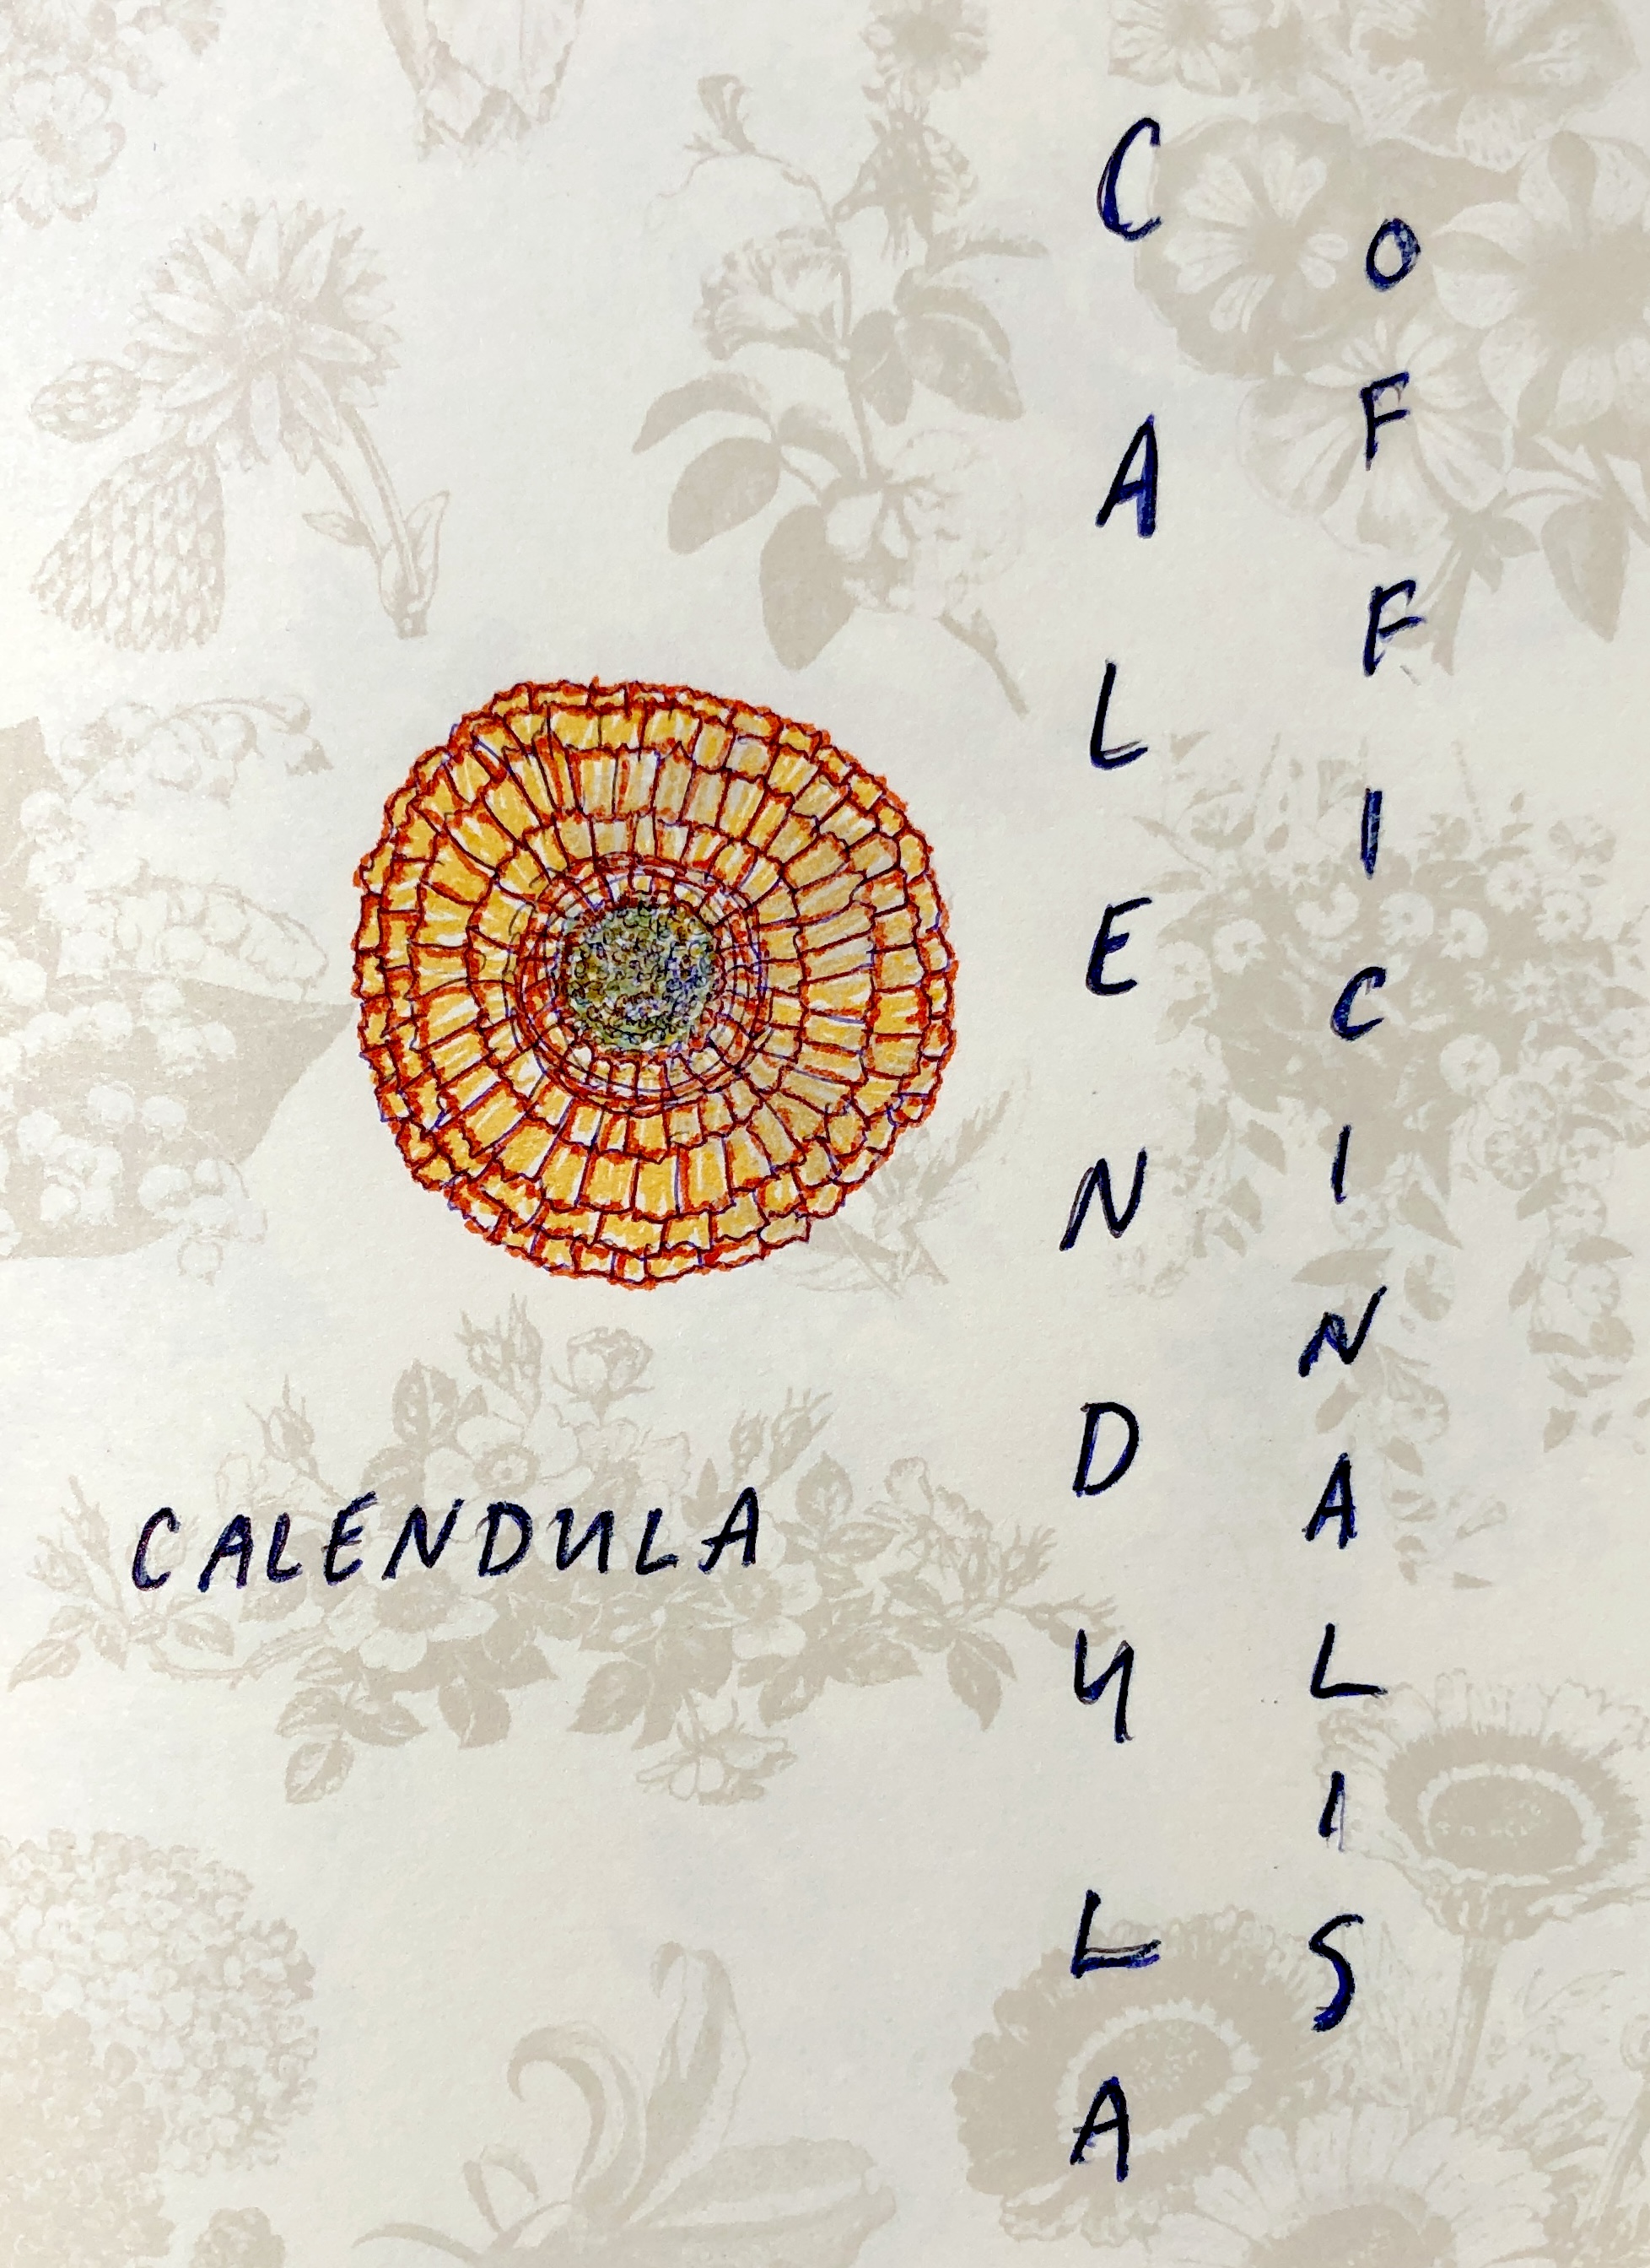 CALENDULA
CALENDULA
OFFICINALIS